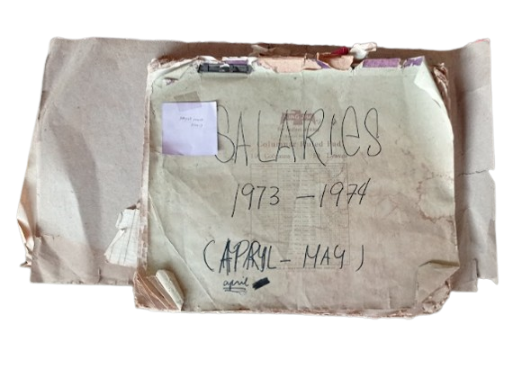 SALARIES
1973 - 1974
(APRYL - MAY)
april